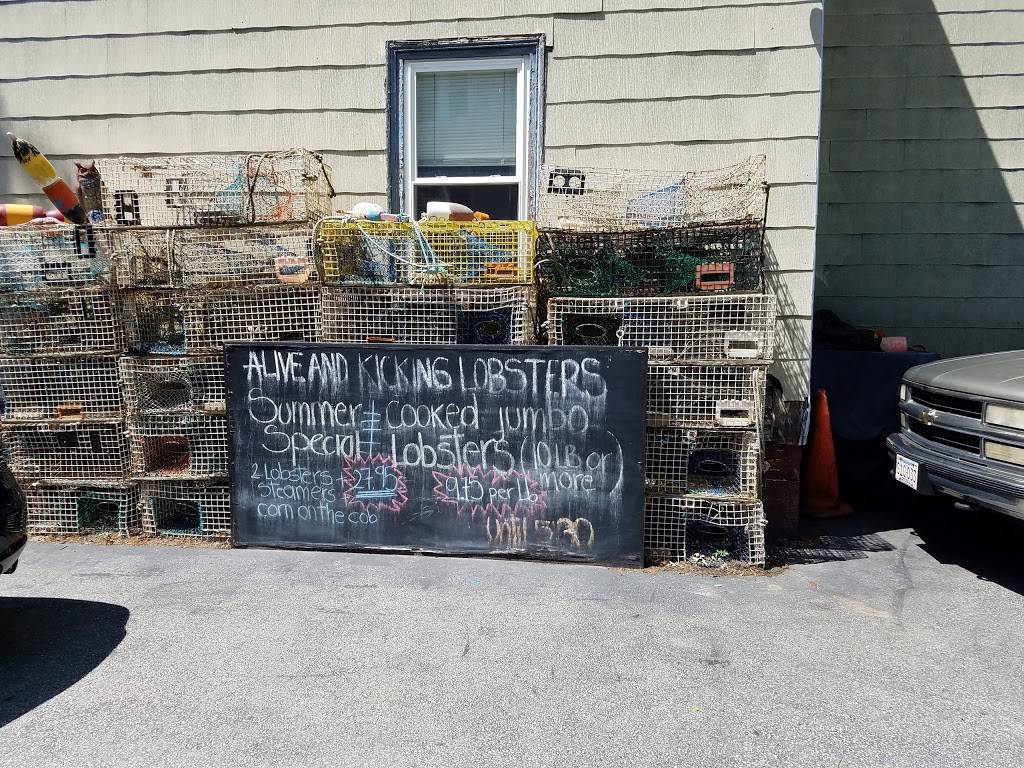 ALIVE AND KICKING LOBSTERS
Summer Special
2 Lobsters
Steamers
corn on the cob
27.95
cooked jumbo
Lobsters (10 LB or more)
9.95 per Lb
Until 5:30